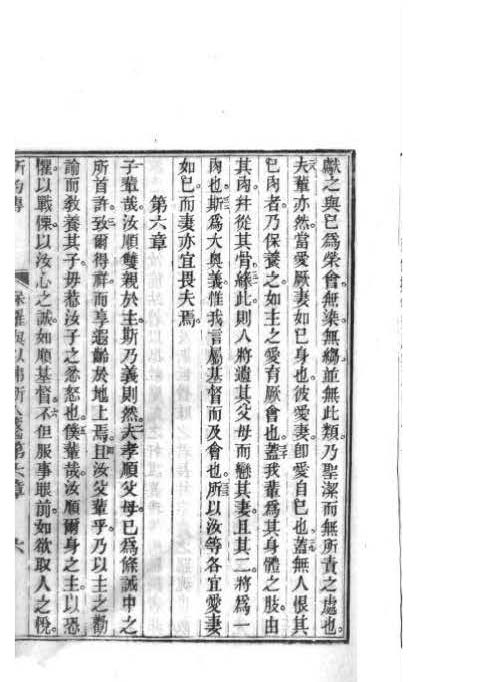 獻之與己爲榮會無染無縐並無此類乃聖潔而無所責之處也
夫輩亦然當愛厥妻如己身也彼愛妻卽愛自己也蓋無人恨其
己肉者乃保養之如主之愛育厥會也蓋我輩爲其身體之肢由
其肉幷從其骨緣此則人將遺其父母而戀其妻且其二將爲一
肉也斯爲大奧義惟我言屬基督而及會也所以汝等各宜愛妻
如己而妻亦宜畏夫焉
第六章
子輩哉汝順雙親於主斯乃義則然夫孝順父母已爲條誡中之
所首許致爾得祥而享遐齡於地上焉且汝父輩乎乃以主之勸
諭而敎養其子毋惹汝子之忿怒也僕輩哉汝順爾身之主以恐
懼以戰慄以汝心之誠如順基督不但服事眼前如欲取人之悅
保羅與以弗所人書第六章 六